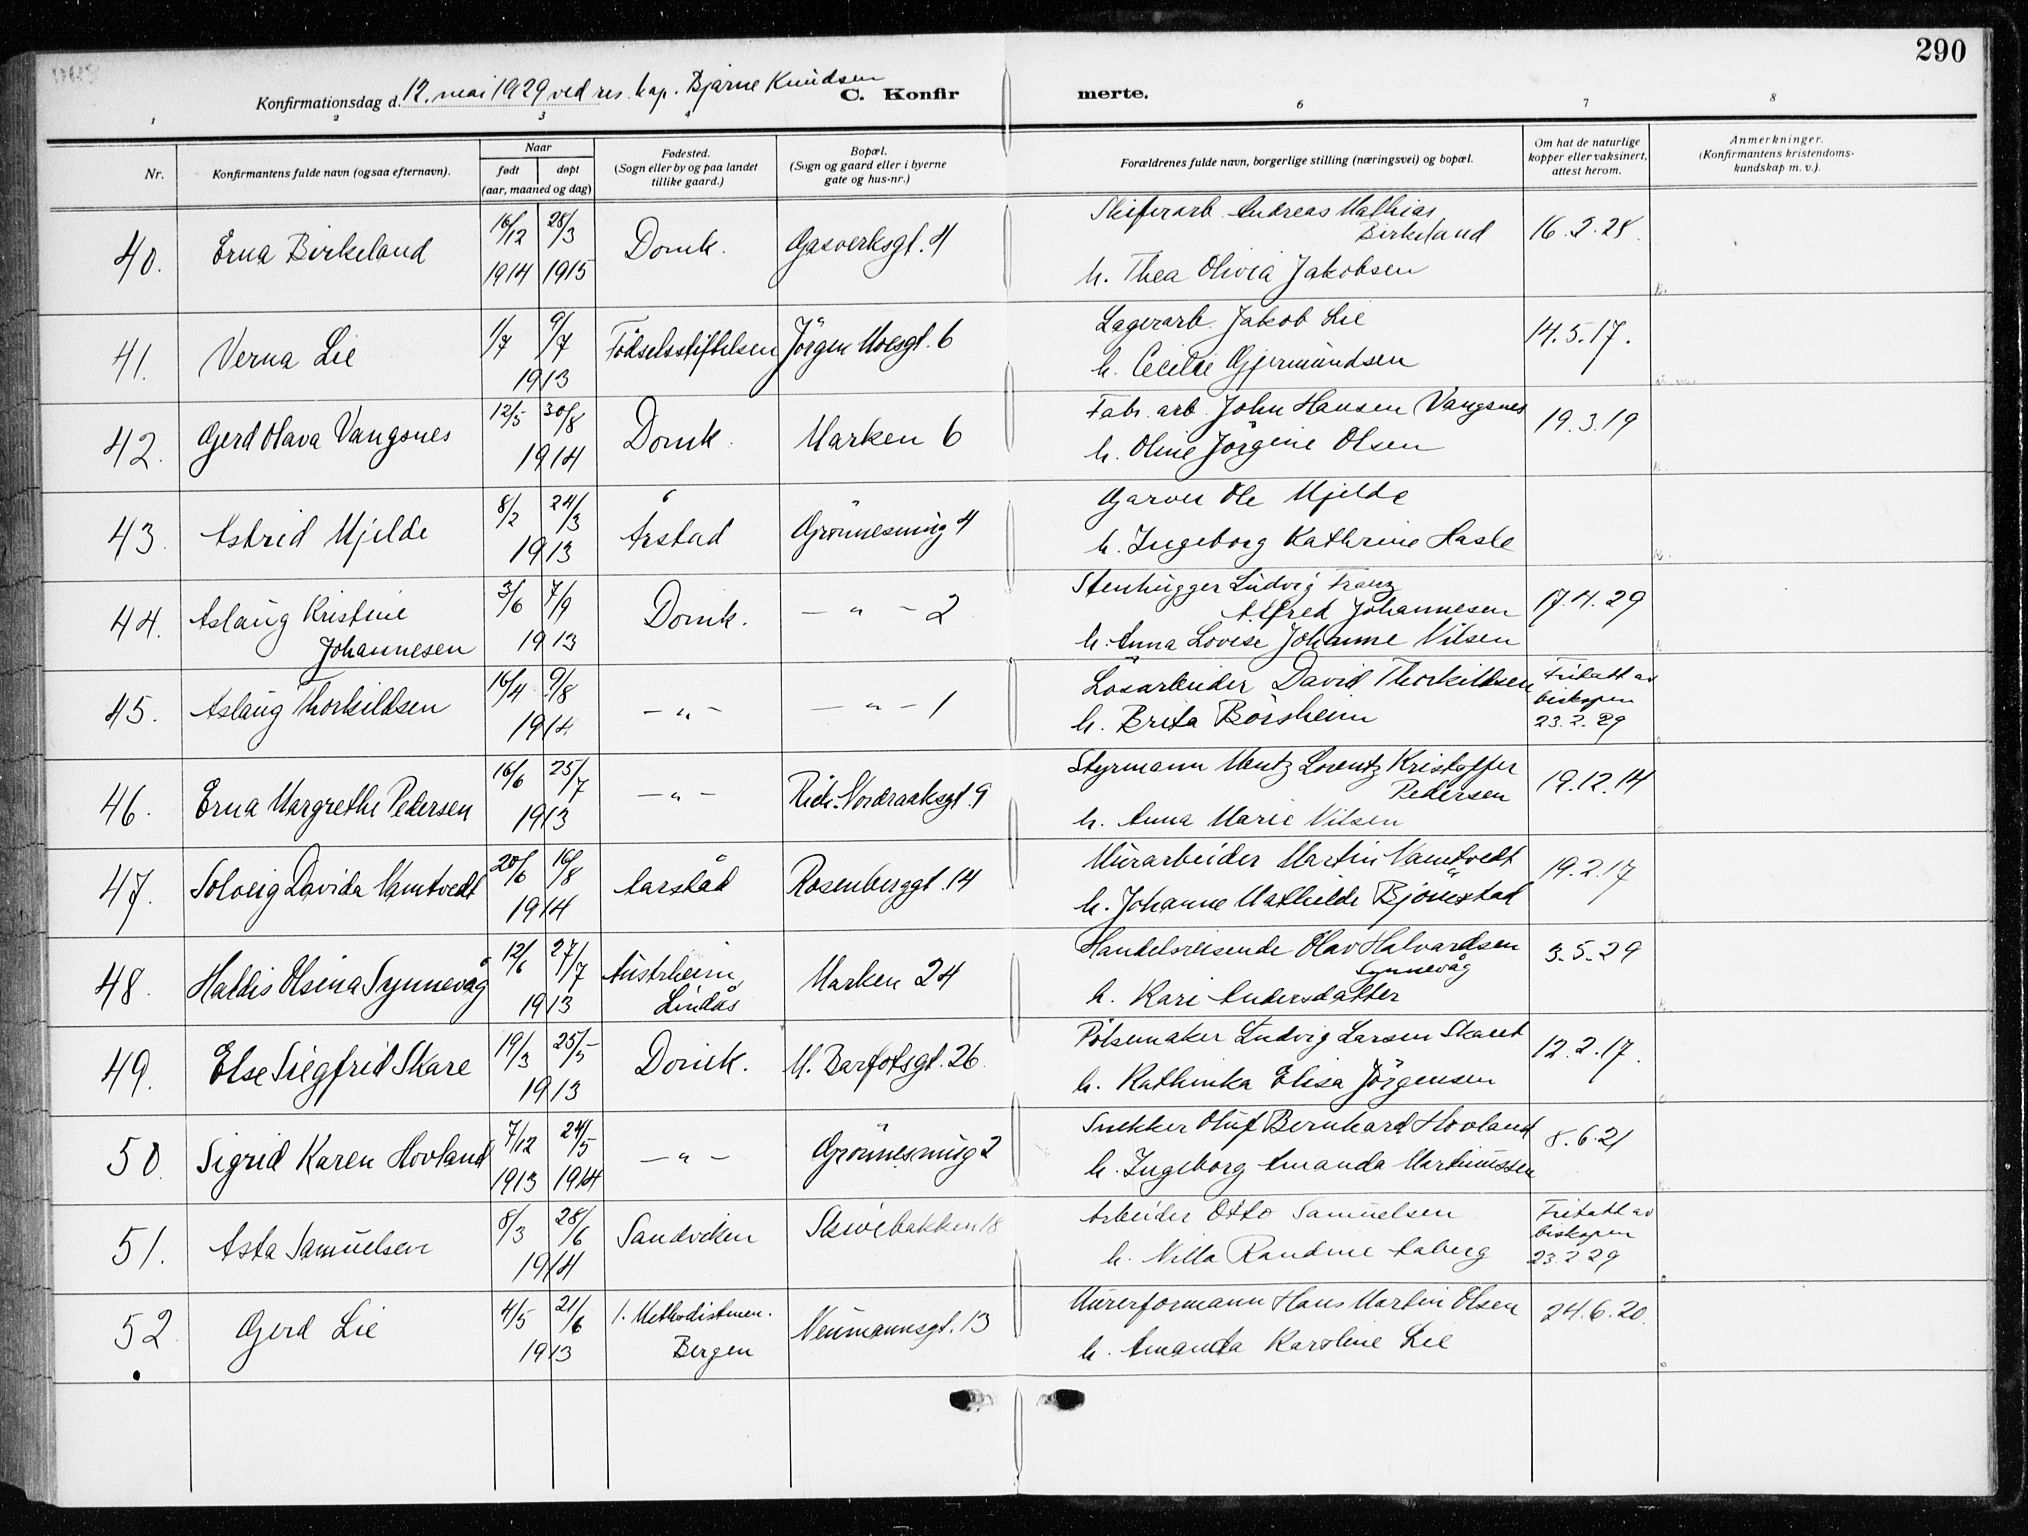 290
Konfirmationsdag d. 12. mai 1929 ved res. kap. Bjarne Knudsen
C. Konfirmerte.
1 2 3 4 6 7 8
Nr.
Konfirmantens fulde navn (ogsaa efternavn).
Naar
født døpt
(aar, maaned og dag)
Fødested.
(Sogn eller by og paa landet
tillike gaard.)
Bopæl.
(Sogn og gaard eller i byerne
gate og hus-nr.)
Forældrenes fulde navn, borgerlige stilling (næringsvei) og bopæl.
Om hat de naturlige
kopper eller vaksinert,
attest herom.
Anmerkninger.
(Konfirmantens kristendoms-
kundskap m. v.).
40. Erna Birkeland 16/12 1914 28/3 1915 Domk. Gasverksgt. 4
Skiferarb. Andreas Mathias
Birkeland
h. Thea Olivia Jakobsen
16.2.28.
41. Verna Lie 1/7 9/7 1913 Födselsstiftelsen Jörgen Moesgt. 6
Lagerarb. Jakob Lie
h. Cecilie Gjermundsen
14.5.17.
42. Gerd Olava Vangsnes 12/5 30/8 1914 Domk. Marken 6
Fabr. arb. John Hansen Vangsnes
h. Oline Jörgine Olsen
19.3.19
43. Astrid Mjelde 8/2 24/3 1913 Årstad Grönnesmug 4
Garver Ole Mjelde
h. Ingeborg Kathrine Hasle
44. Aslaug Kristine
Johannesen 3/6 7/9 1913 Domk. — " — 2
Stenhugger Ludvig Franz
Alfred Johannesen
h. Anna Lovise Johanne Nilsen
17.4.29
45. Aslaug Thorkildsen 16/4 9/8 1914 — " — — " — 1
Lösarbeider David Thorkildsen
h. Brita Börsheim
Fritatt av
biskopen
23.2.29
46. Erna Margrethe Pedersen 16/6 25/7 1913 — " — Rich. Nordraaksgt. 9
Styrmann Mentz Lorentz Kristoffer
Pedersen
h. Anna Marie Nilsen
19.12.14
47. Solveig Davida Namtvedt 20/6 16/8 1914 Aarstad Rosenberggt. 14
Murarbeider Martin Namtvedt
h. Johanne Mathilde Björnestad
19.2.17
48. Haldis Olsina Synnevåg 12/6 27/7 1913 Austrheim
Lindås Marken 24
Handelsreisende Olav Halvardsen
Synnevåg
h. Kari Andersdatter
3.5.29
49. Else Siegfrid Skare 19/3 25/5 1913 Domk. M. Barfotsgt. 26.
Pölsemaker Ludvig Larsen Skaret
h. Kathinka Elisa Jörgensen
12.2.17.
50. Sigrid Karen Hovland 7/12 1913 24/5 1914 — " — Grönnesmug 2
Snekker Oluf Bernhard Hovland
h. Ingeborg Amanda Martinussen
8.6.21
51. Asta Samuelsen 8/3 28/6 1914 Sandviken Skivebakken 18
Arbeider Otto Samuelsen
h. Nilla Randine Aaberg
Fritatt av
biskopen
23.2.29
52. Gerd Lie 4/5 21/6 1913 1. Methodistmen.
Bergen Neumannsgt. 13
Murerformann Hans Martin Olsen
h. Amanda Karoline Lie
24.6.20.